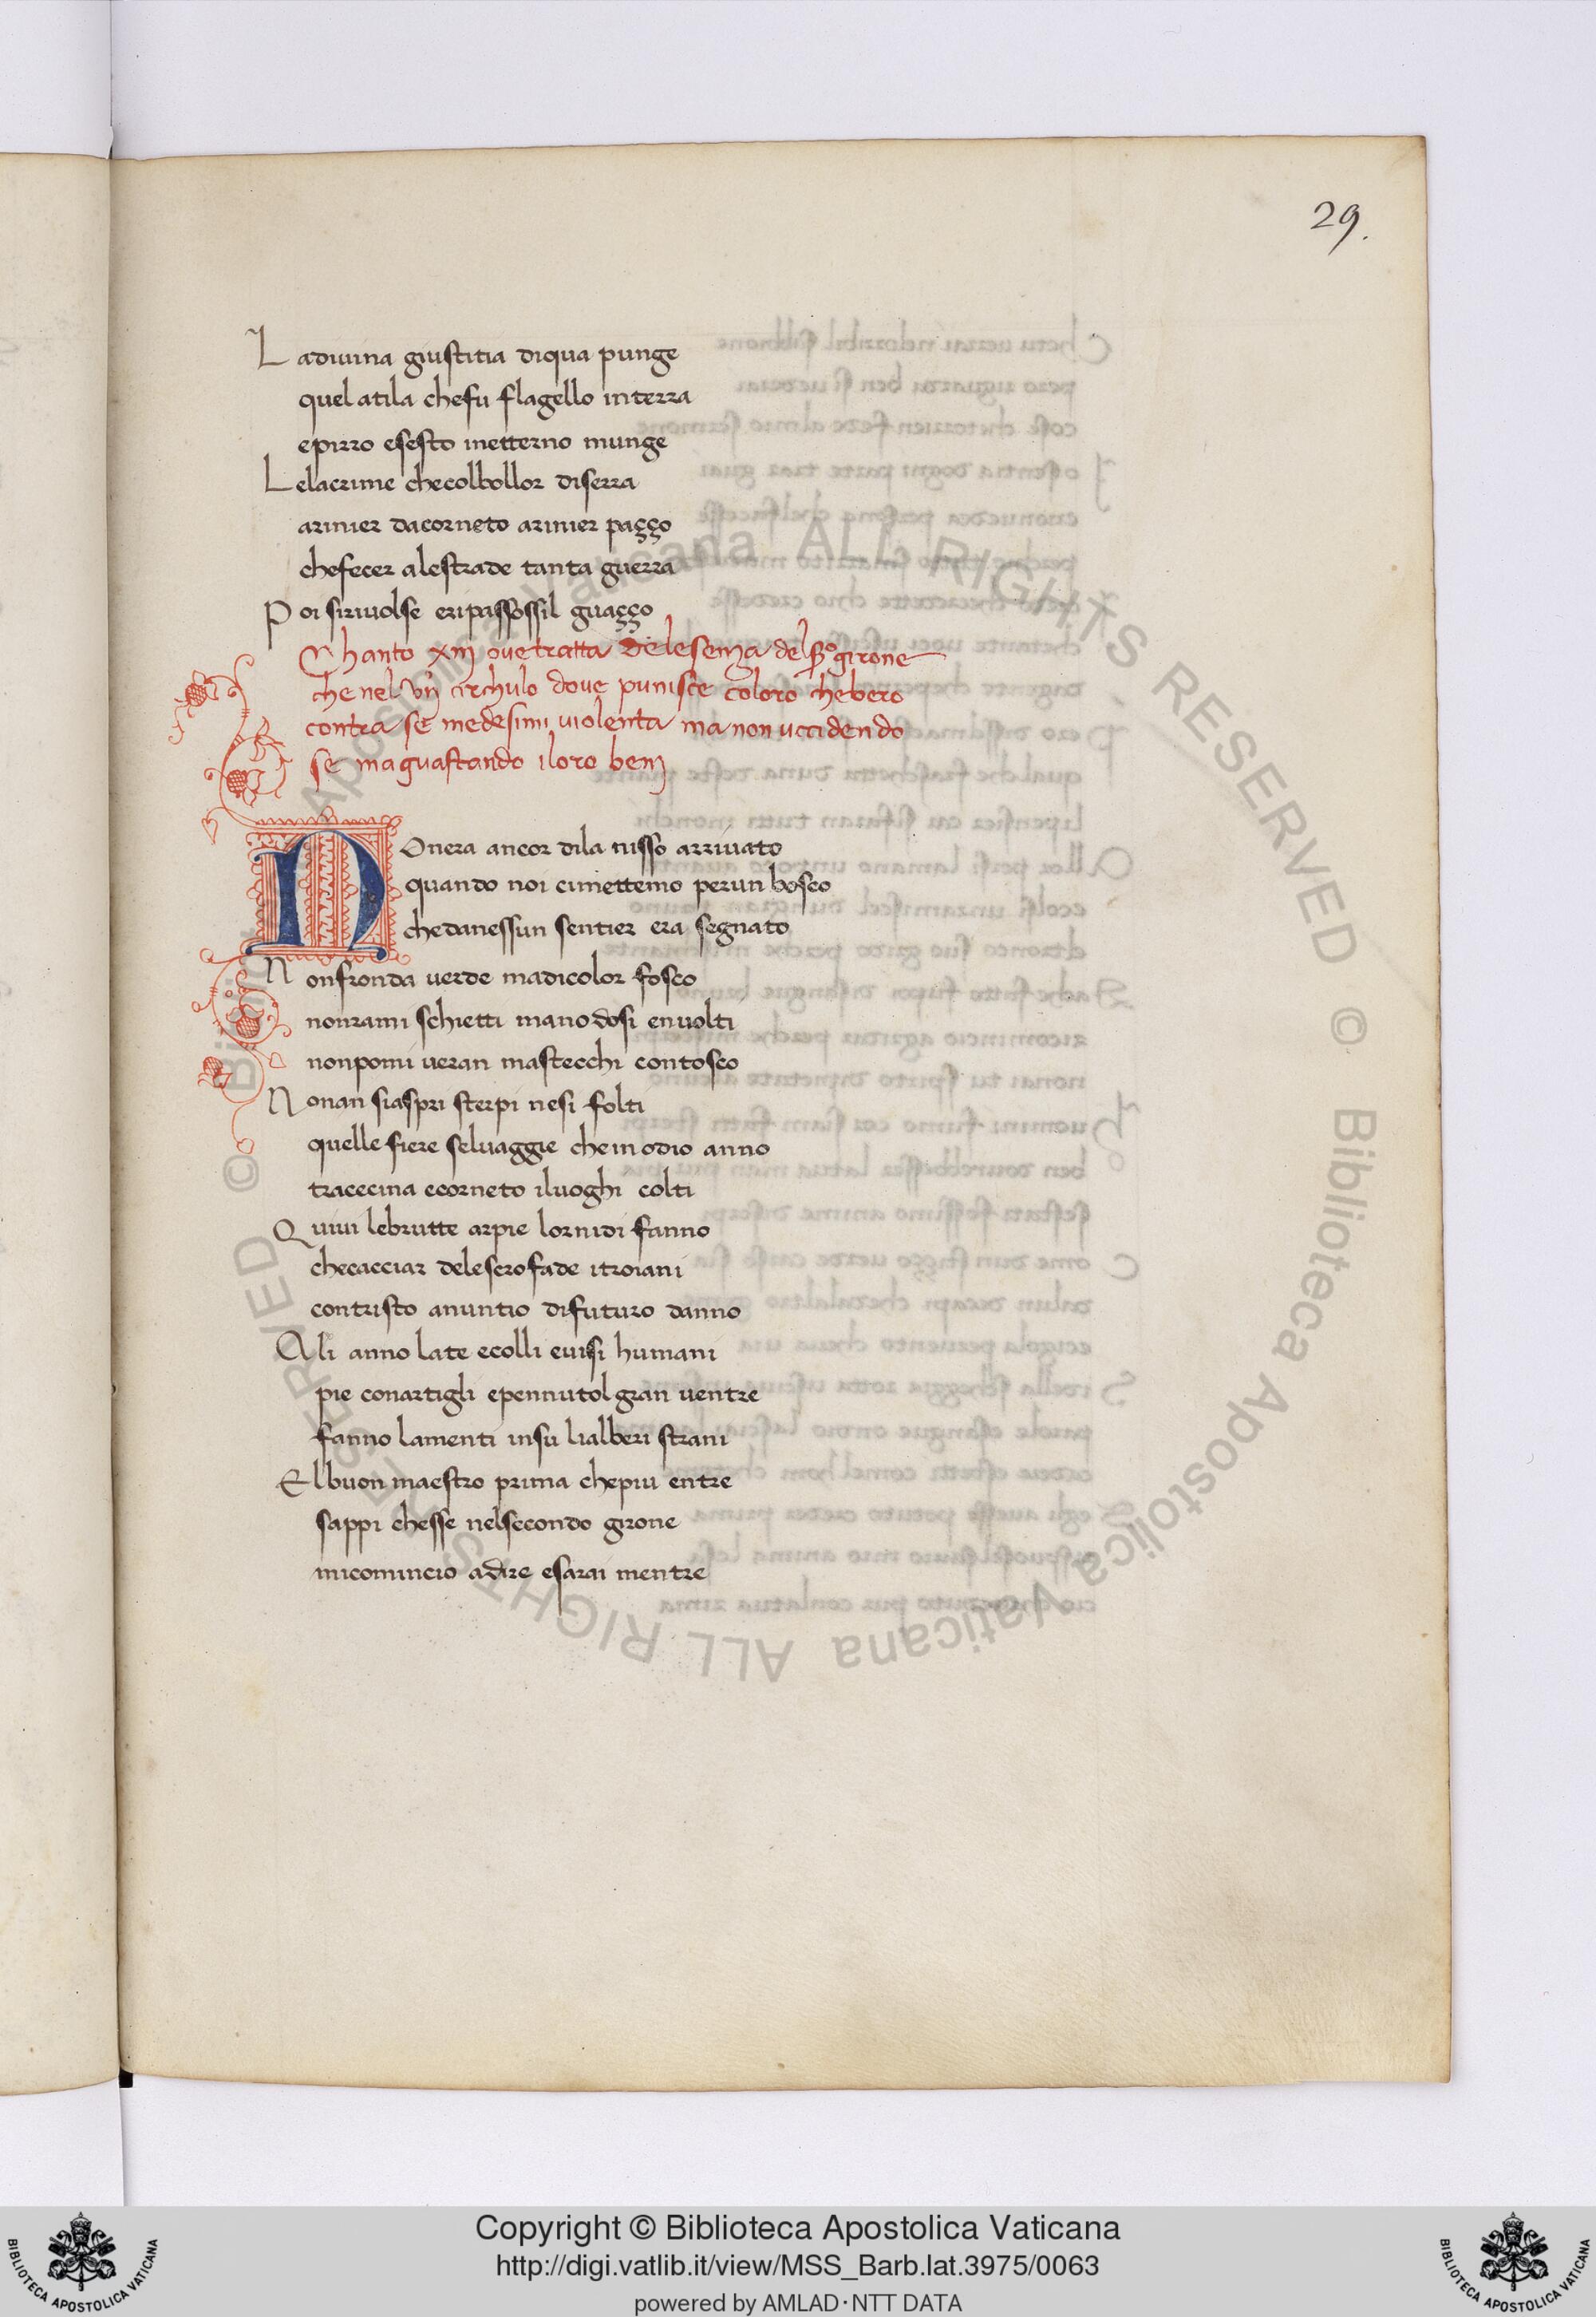 29.
L adiuina giustitia diqua punge
quel atila chefu flagello interra
epirro esesto inetterno munge
L elacrime checolbollor diserra
arinier dacorneto arinier paçço
chefecer alestrade tanta guerra
P oi siriuolse eripassossil guaçço
Chanto xiij ove tratta delesenza del sº girone
che nel vij circhulo dove punisce coloro chebero
contra se medesimi violenta ma non uccidendo
se ma guastando iloro benj
N Onera ancor dila nisso arriuato
quando noi cimettemo perun bosco
chedanessun sentier era segnato
N onfronda uerde madicolor fosco
nonrami schietti manodosi enuolti
nonpomi ueran mastecchi contosco
N onan siaspri sterpi nesi folti
quelle fiere seluaggie cheinodio anno
tracecina ecorneto iluoghi colti
Q uiui lebrutte arpie lornidi fanno
checacciar delescrofade itroiani
contristo anuntio difuturo danno
A li anno late ecolli euisi humani
pie conartigli epennutol gran uentre
fanno lamenti insu lialberi strani
E lbuon maestro prima chepiu entre
sappi chesse nelsecondo girone
micomincio adire esarai mentre
Copyright © Biblioteca Apostolica Vaticana
http://digi.vatlib.it/view/MSS_Barb.lat.3975/0063
powered by AMLAD·NTT DATA
BIBLIOTECA APOSTOLICA VATICANA
BIBLIOTECA APOSTOLICA VATICANA
© Biblioteca Apostolica Vaticana ALL RIGHTS RESERVED © Biblioteca Apostolica Vaticana ALL RIGHTS RESERVED